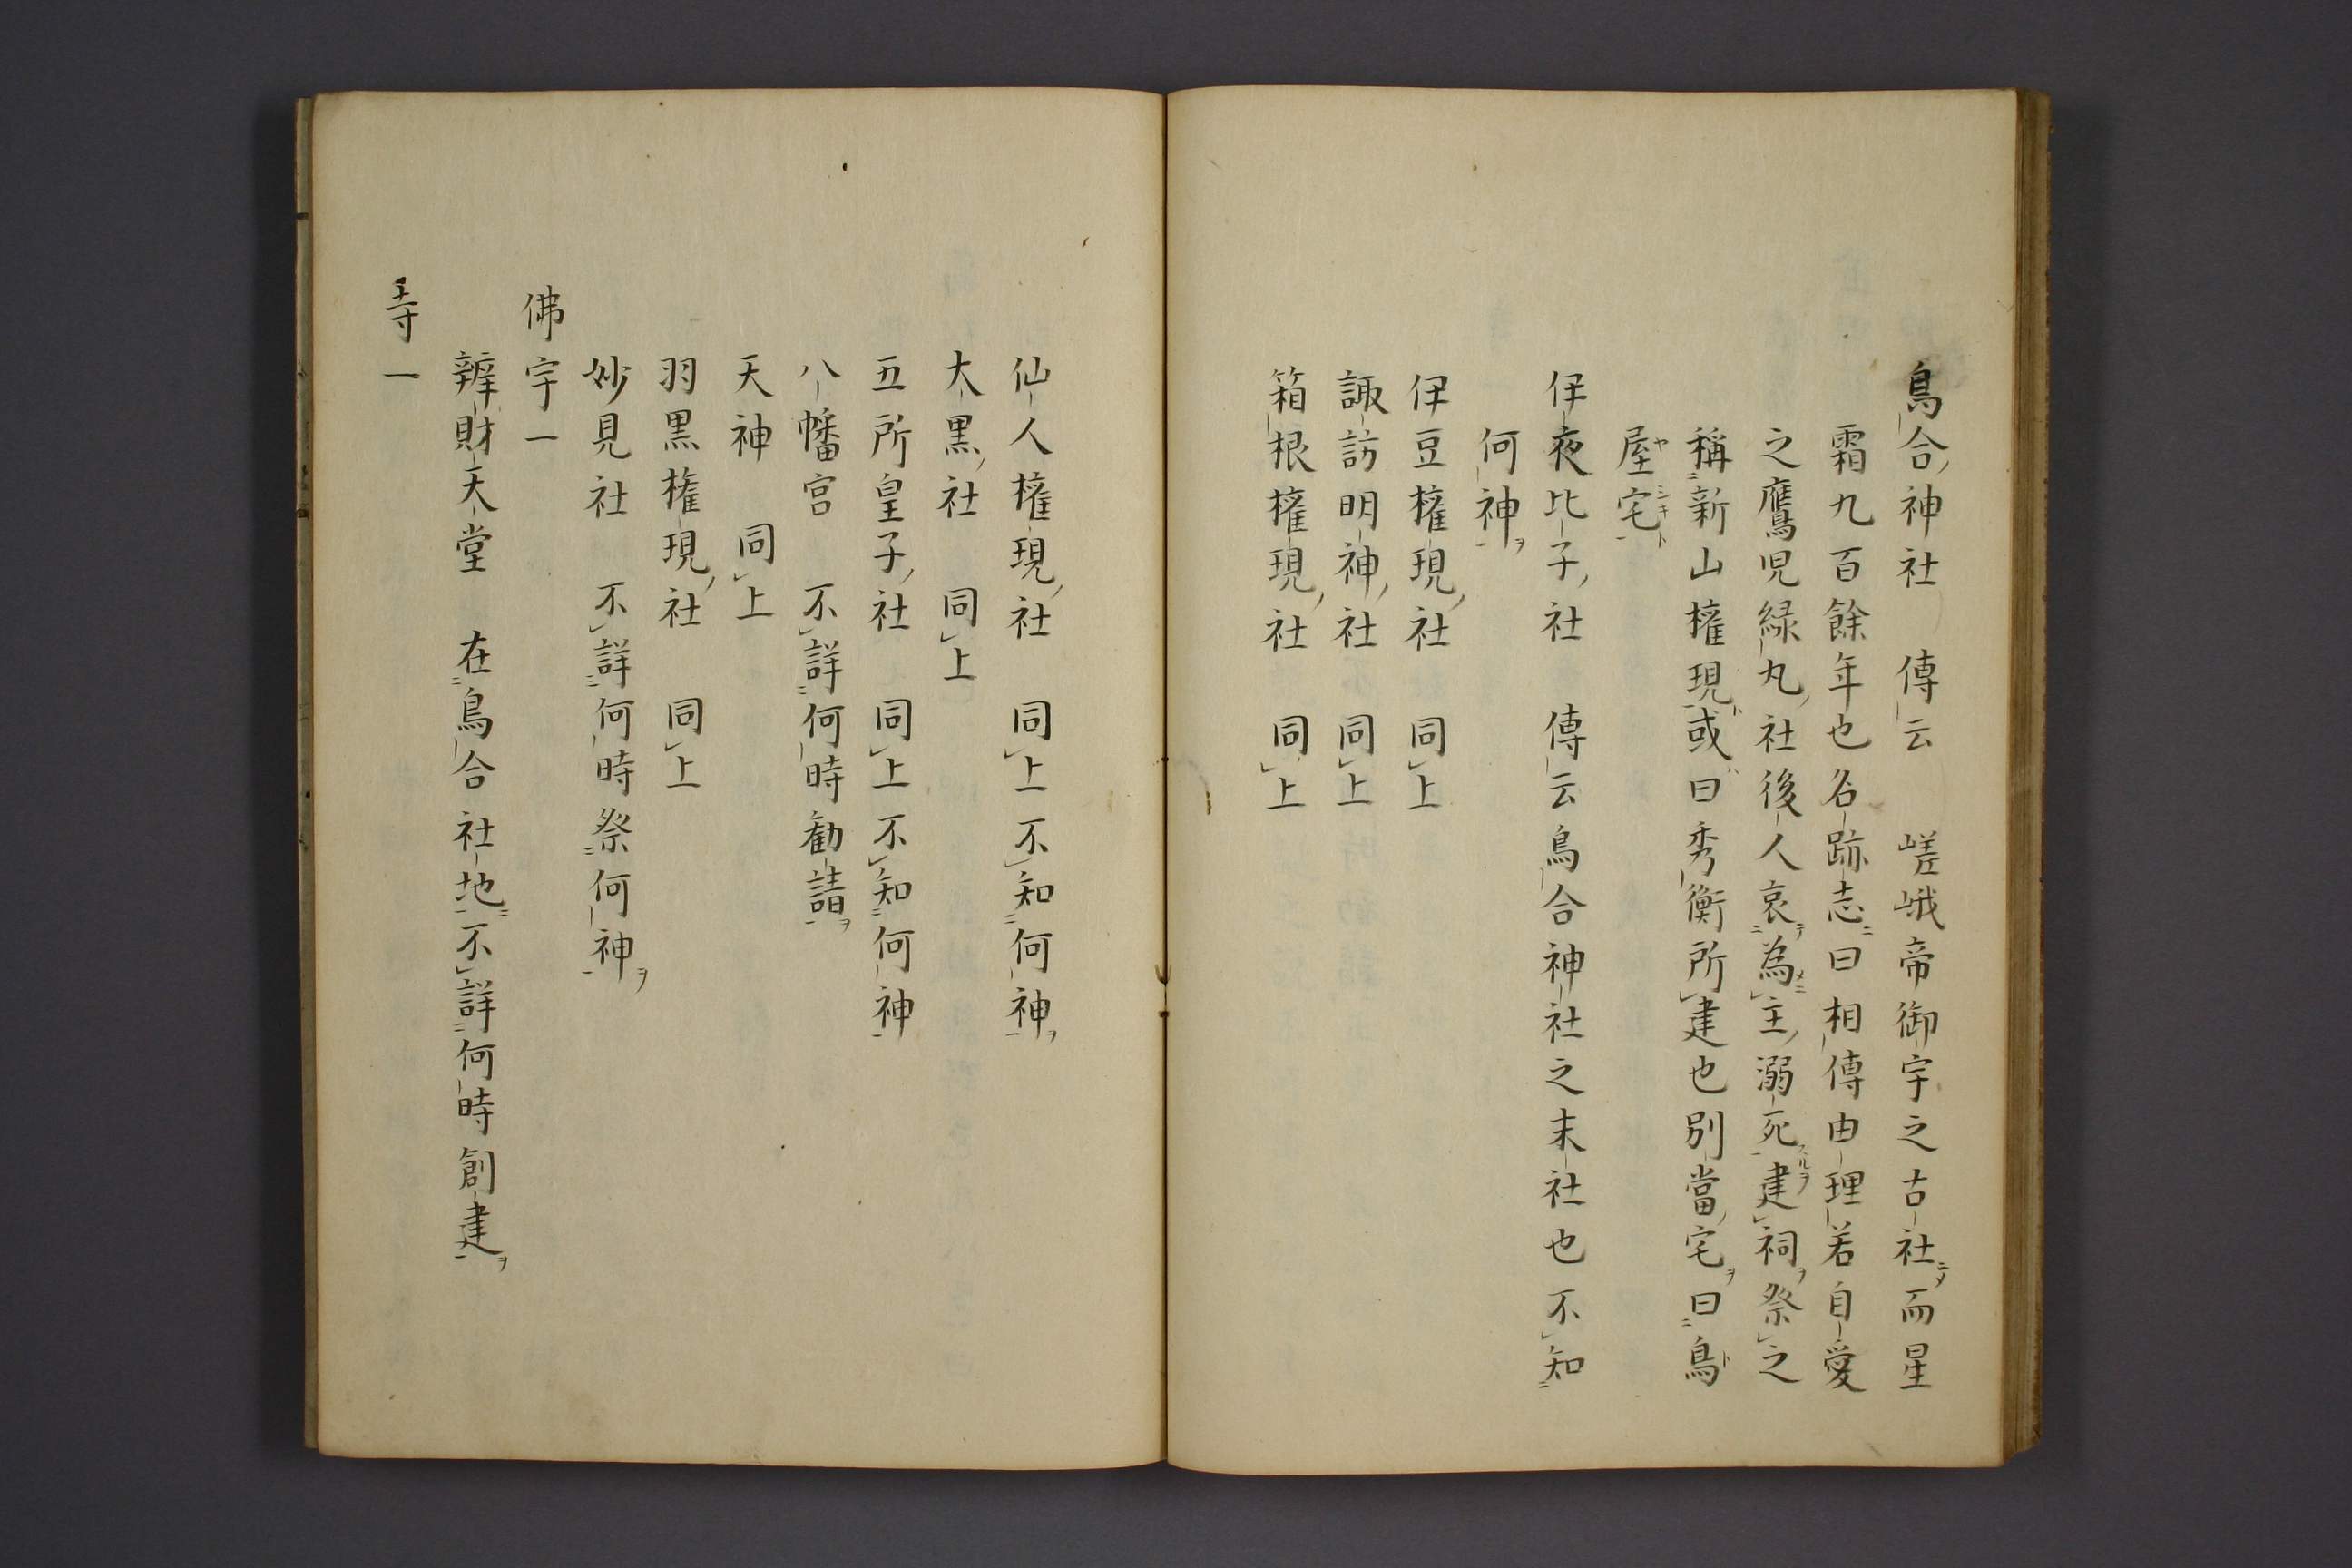 鳥合神社　傳云　嵯峨帝御宇之古社而星
霜九百餘年也名跡志曰相傳由理若自愛
之鷹児緑丸社後人哀為主溺死建祠祭之
稱新山権現或曰秀衡所建也別當宅曰鳥
屋宅
伊夜比子社　傳云鳥合神社之末社也不知
何神
伊豆権現社　同上
諏訪明神社　同上
箱根権現社　同上
仙人権現社　同上不知何神
大黒社　同上
五所皇子社　同上不知何神
八幡宮　不詳何時勧請
天神　同上
羽黒権現社　同上
妙見社　不詳何時祭何神
佛宇一
辨財天堂　在鳥合社地不詳何時創建
寺一